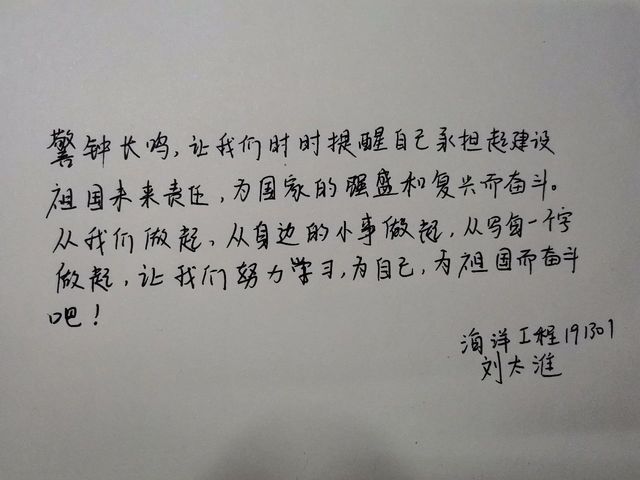 警钟长鸣，让我们时时提醒自己承担起建设
祖国未来责任，为国家的强盛和复兴而奋斗。
从我们做起，从身边的小事做起，从写每一个字
做起，让我们努力学习，为自己，为祖国而奋斗
吧！
海洋工程191301
刘太淮